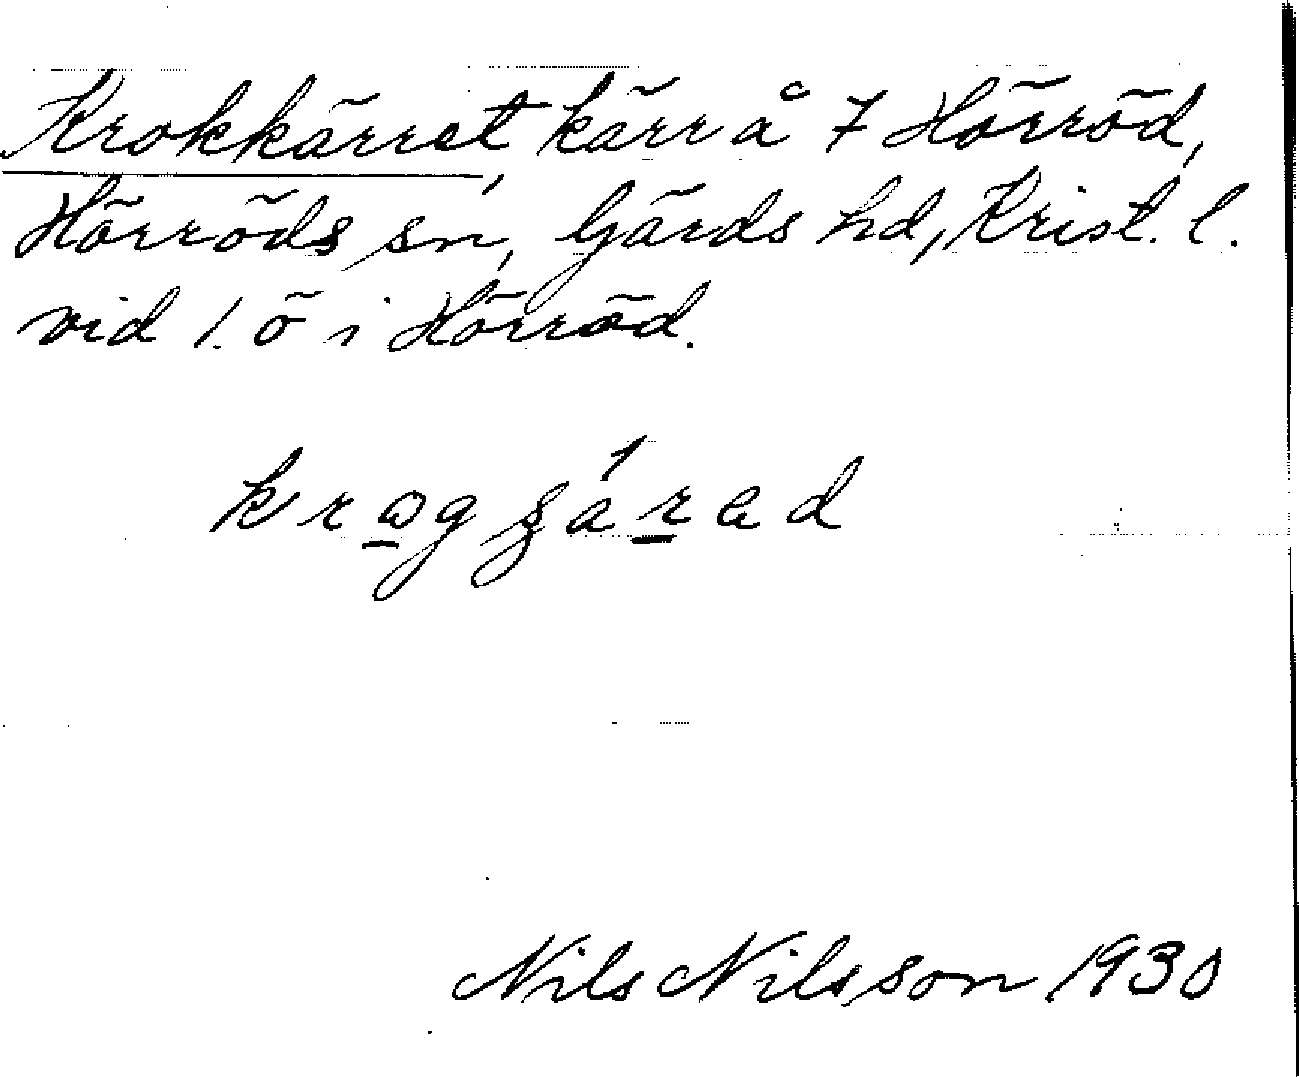 Krokkärret, kärr å 7 Hörröd,
Hörröds sn, Gärds hd, Krist. l.
vid 1. ö i Hörröd.
Nils Nilsson 1930